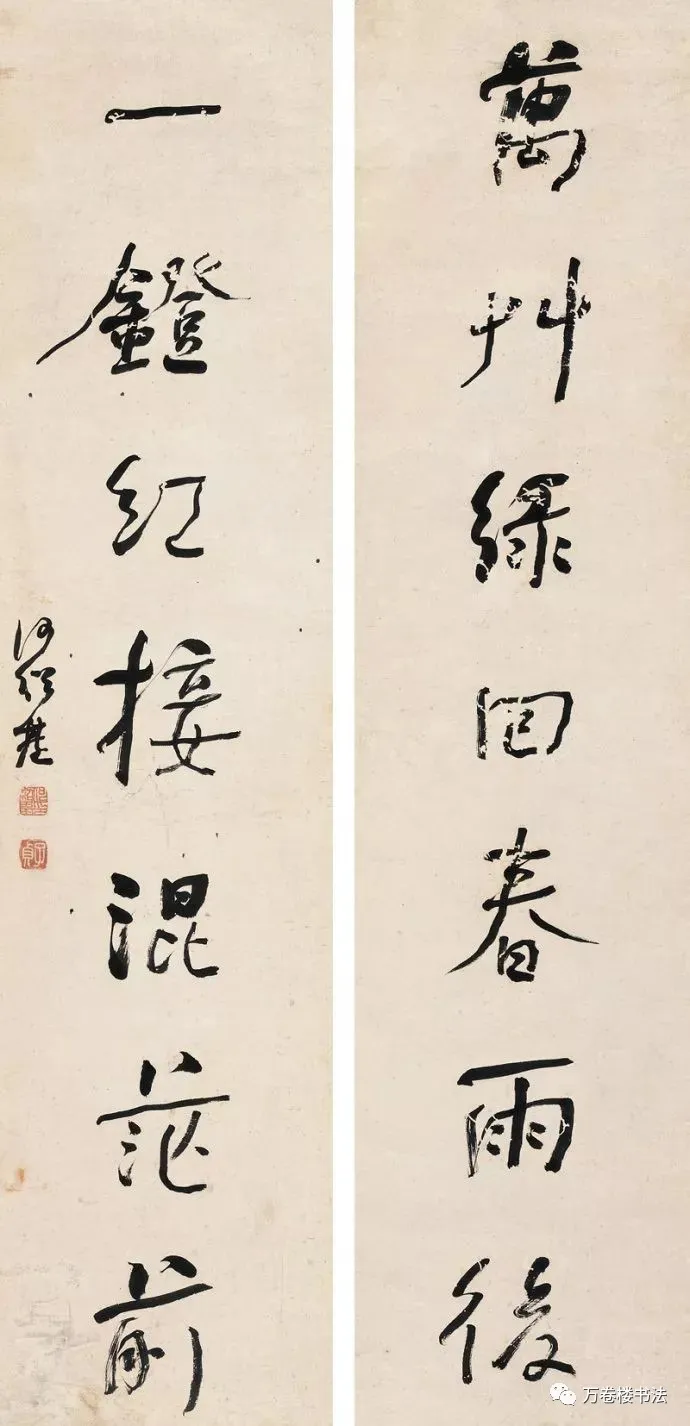 萬艸綠回春雨後
一鐙紅接混茫前
何紹基
子貞
万卷楼书法